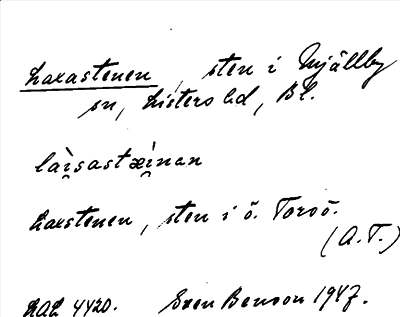 Laxastenen, sten i Mjällby
sn, Listers hd, Bl.
laìsastæìnan
Laxstenen, sten i ö. Torsö.
(A.T.)
LAL 4420. Sven Benson 1947.